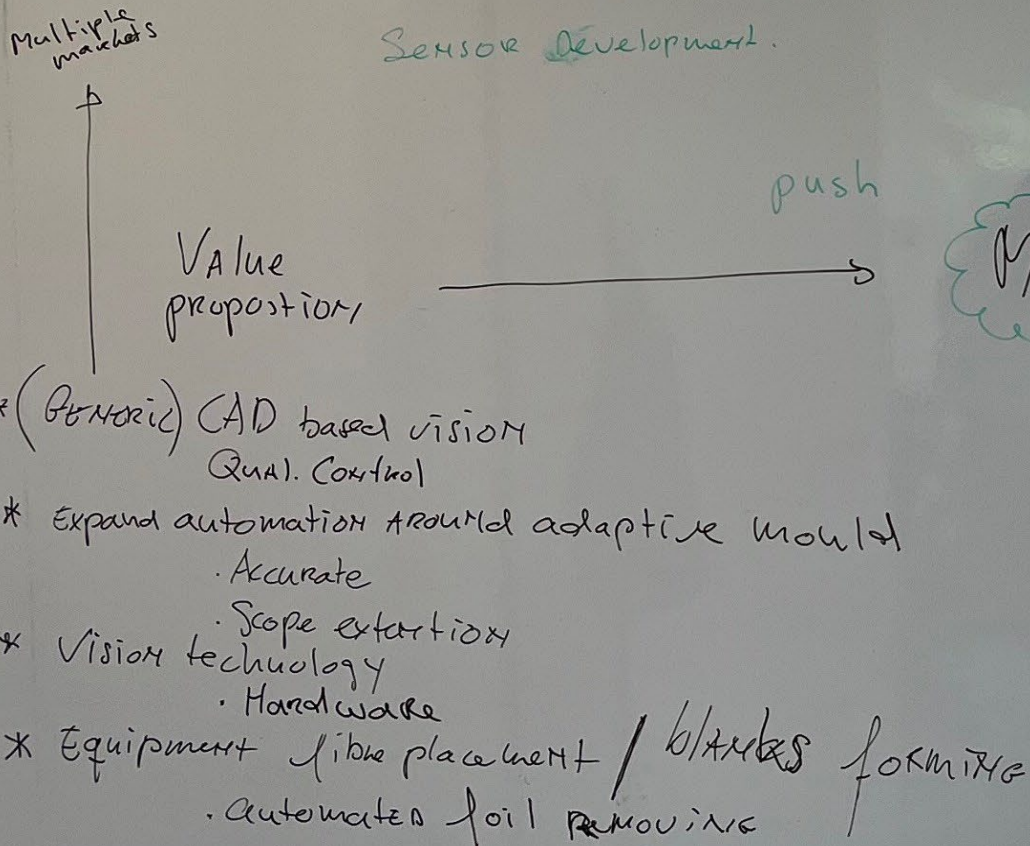 Multiple
markets
Sensor Development.
push
Value
propostion
* (Generic) CAD based vision
Qual. Control
* Expand automation around adaptive mould
· Accurate
· Scope
* Vision technology
· Hardware
* Equipment fibre placement / forming
· automated foil removing